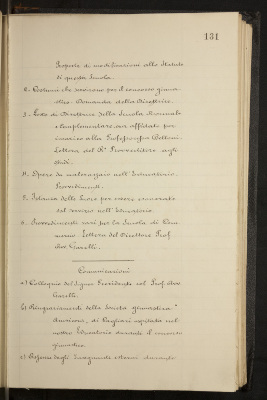 131
Proposte di modificazioni allo Statuto
di questa Scuola.
2. Costumi che servirono pel concorso ginna-
stico. Domanda della Direttrice.
3. Posto di Direttrice della Scuola Normale
e Complementare ora affidato per
incarico alla Professoressa Bettoni.
Lettera del R° Provveditore agli
studi.
4. Opere da materassaio nell'Educatorio.
Provvedimenti.
5. Istanza delle Suore per essere esonerate
dal servizio nell'Educatorio.
6. Provvedimenti vari per la Scuola di
Lettera del Direttore Prof.
Garelli.
Comunicazioni
a) Colloquio del Signor Presidente col Prof.
Garelli.
b) Ringraziamenti della Società ginnastica
di Cagliari ospitata nel
nostro Educatorio durante il concorso
ginnastico.
c) degli Insegnanti esterni durante